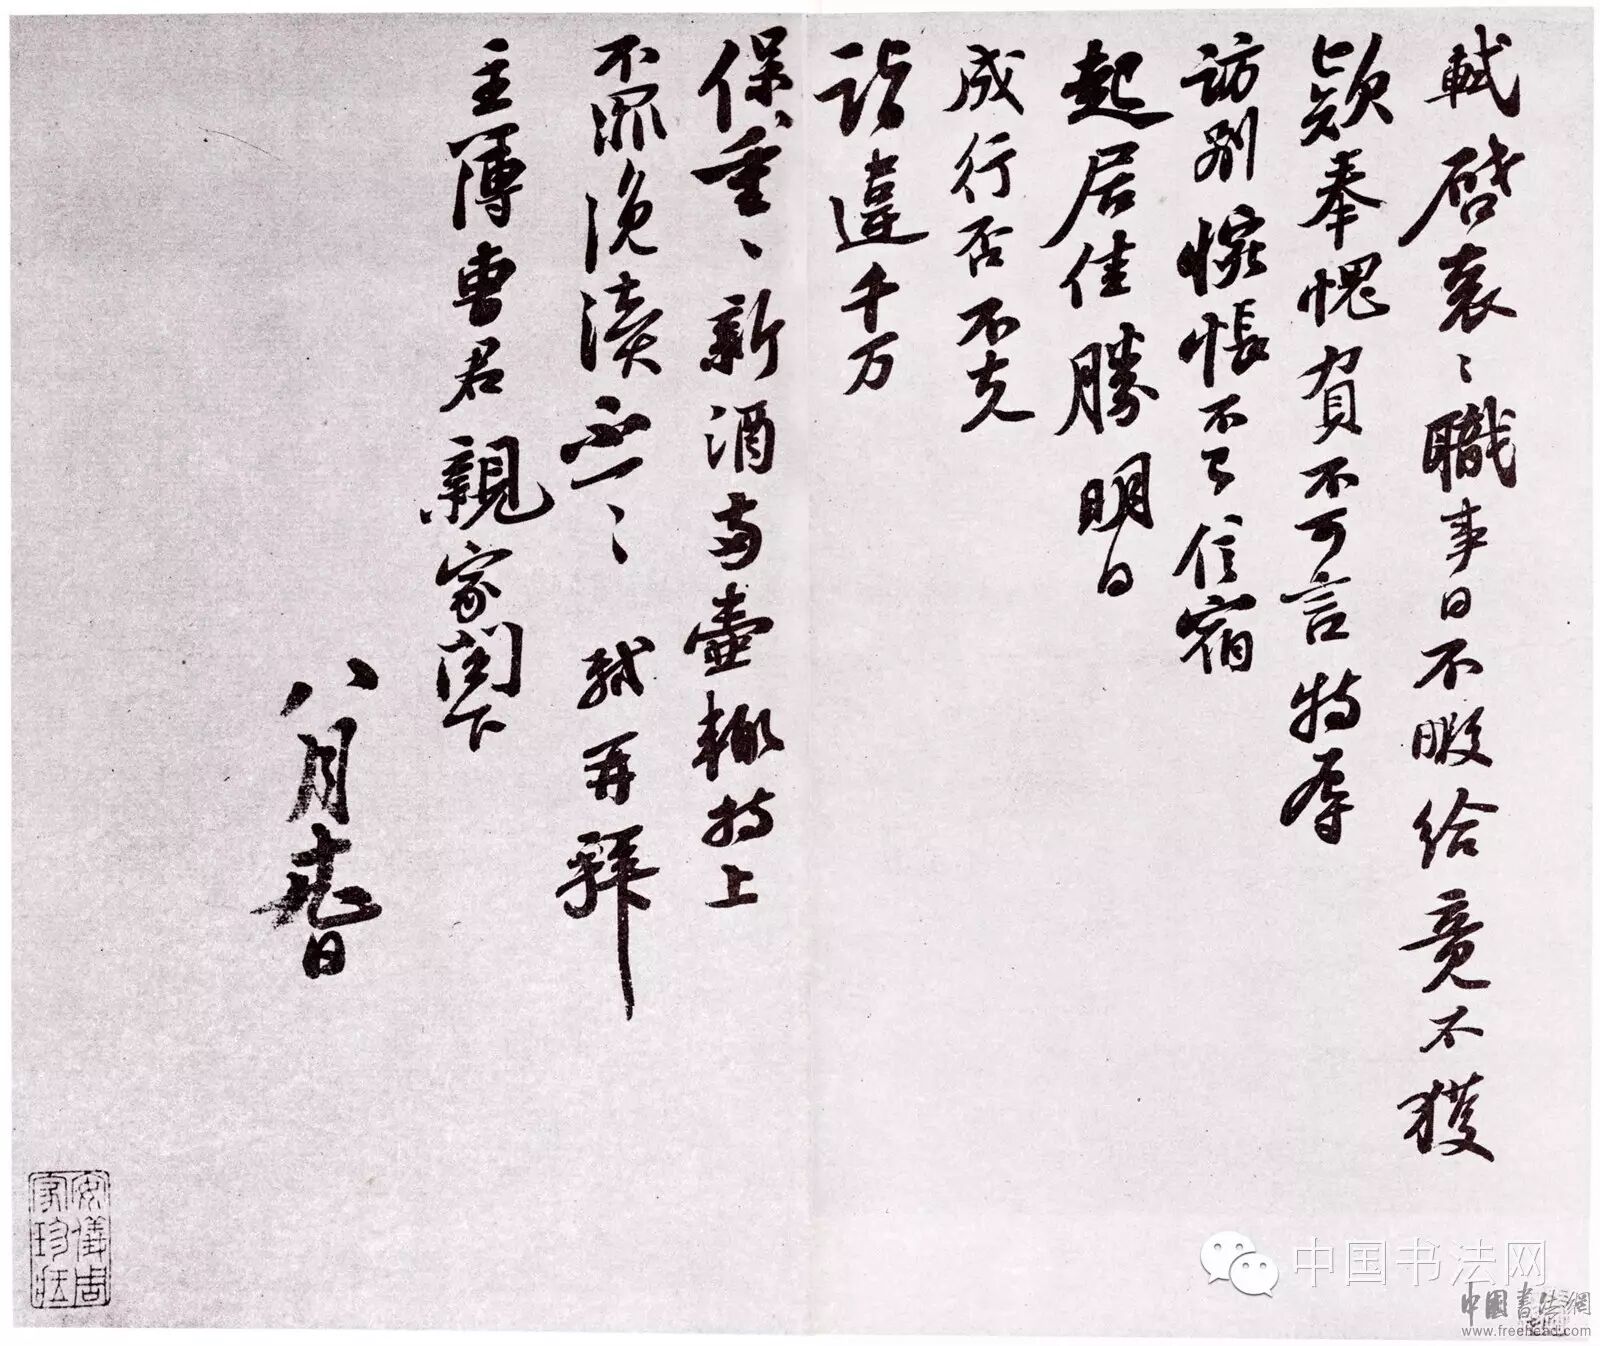 軾啓袞〻職事日不暇給竟不獲
款奉愧負不可言特辱
訪別惋悵不已信宿
起居佳勝明日
成行否不克
詣違千万
保重〻新酒兩壺輒持上
不罪浼瀆不一〻軾再拜
主簿曹君親家閤下
八月日
安儀周家珍藏
中国书法网
中國書法網
www.freehead.com